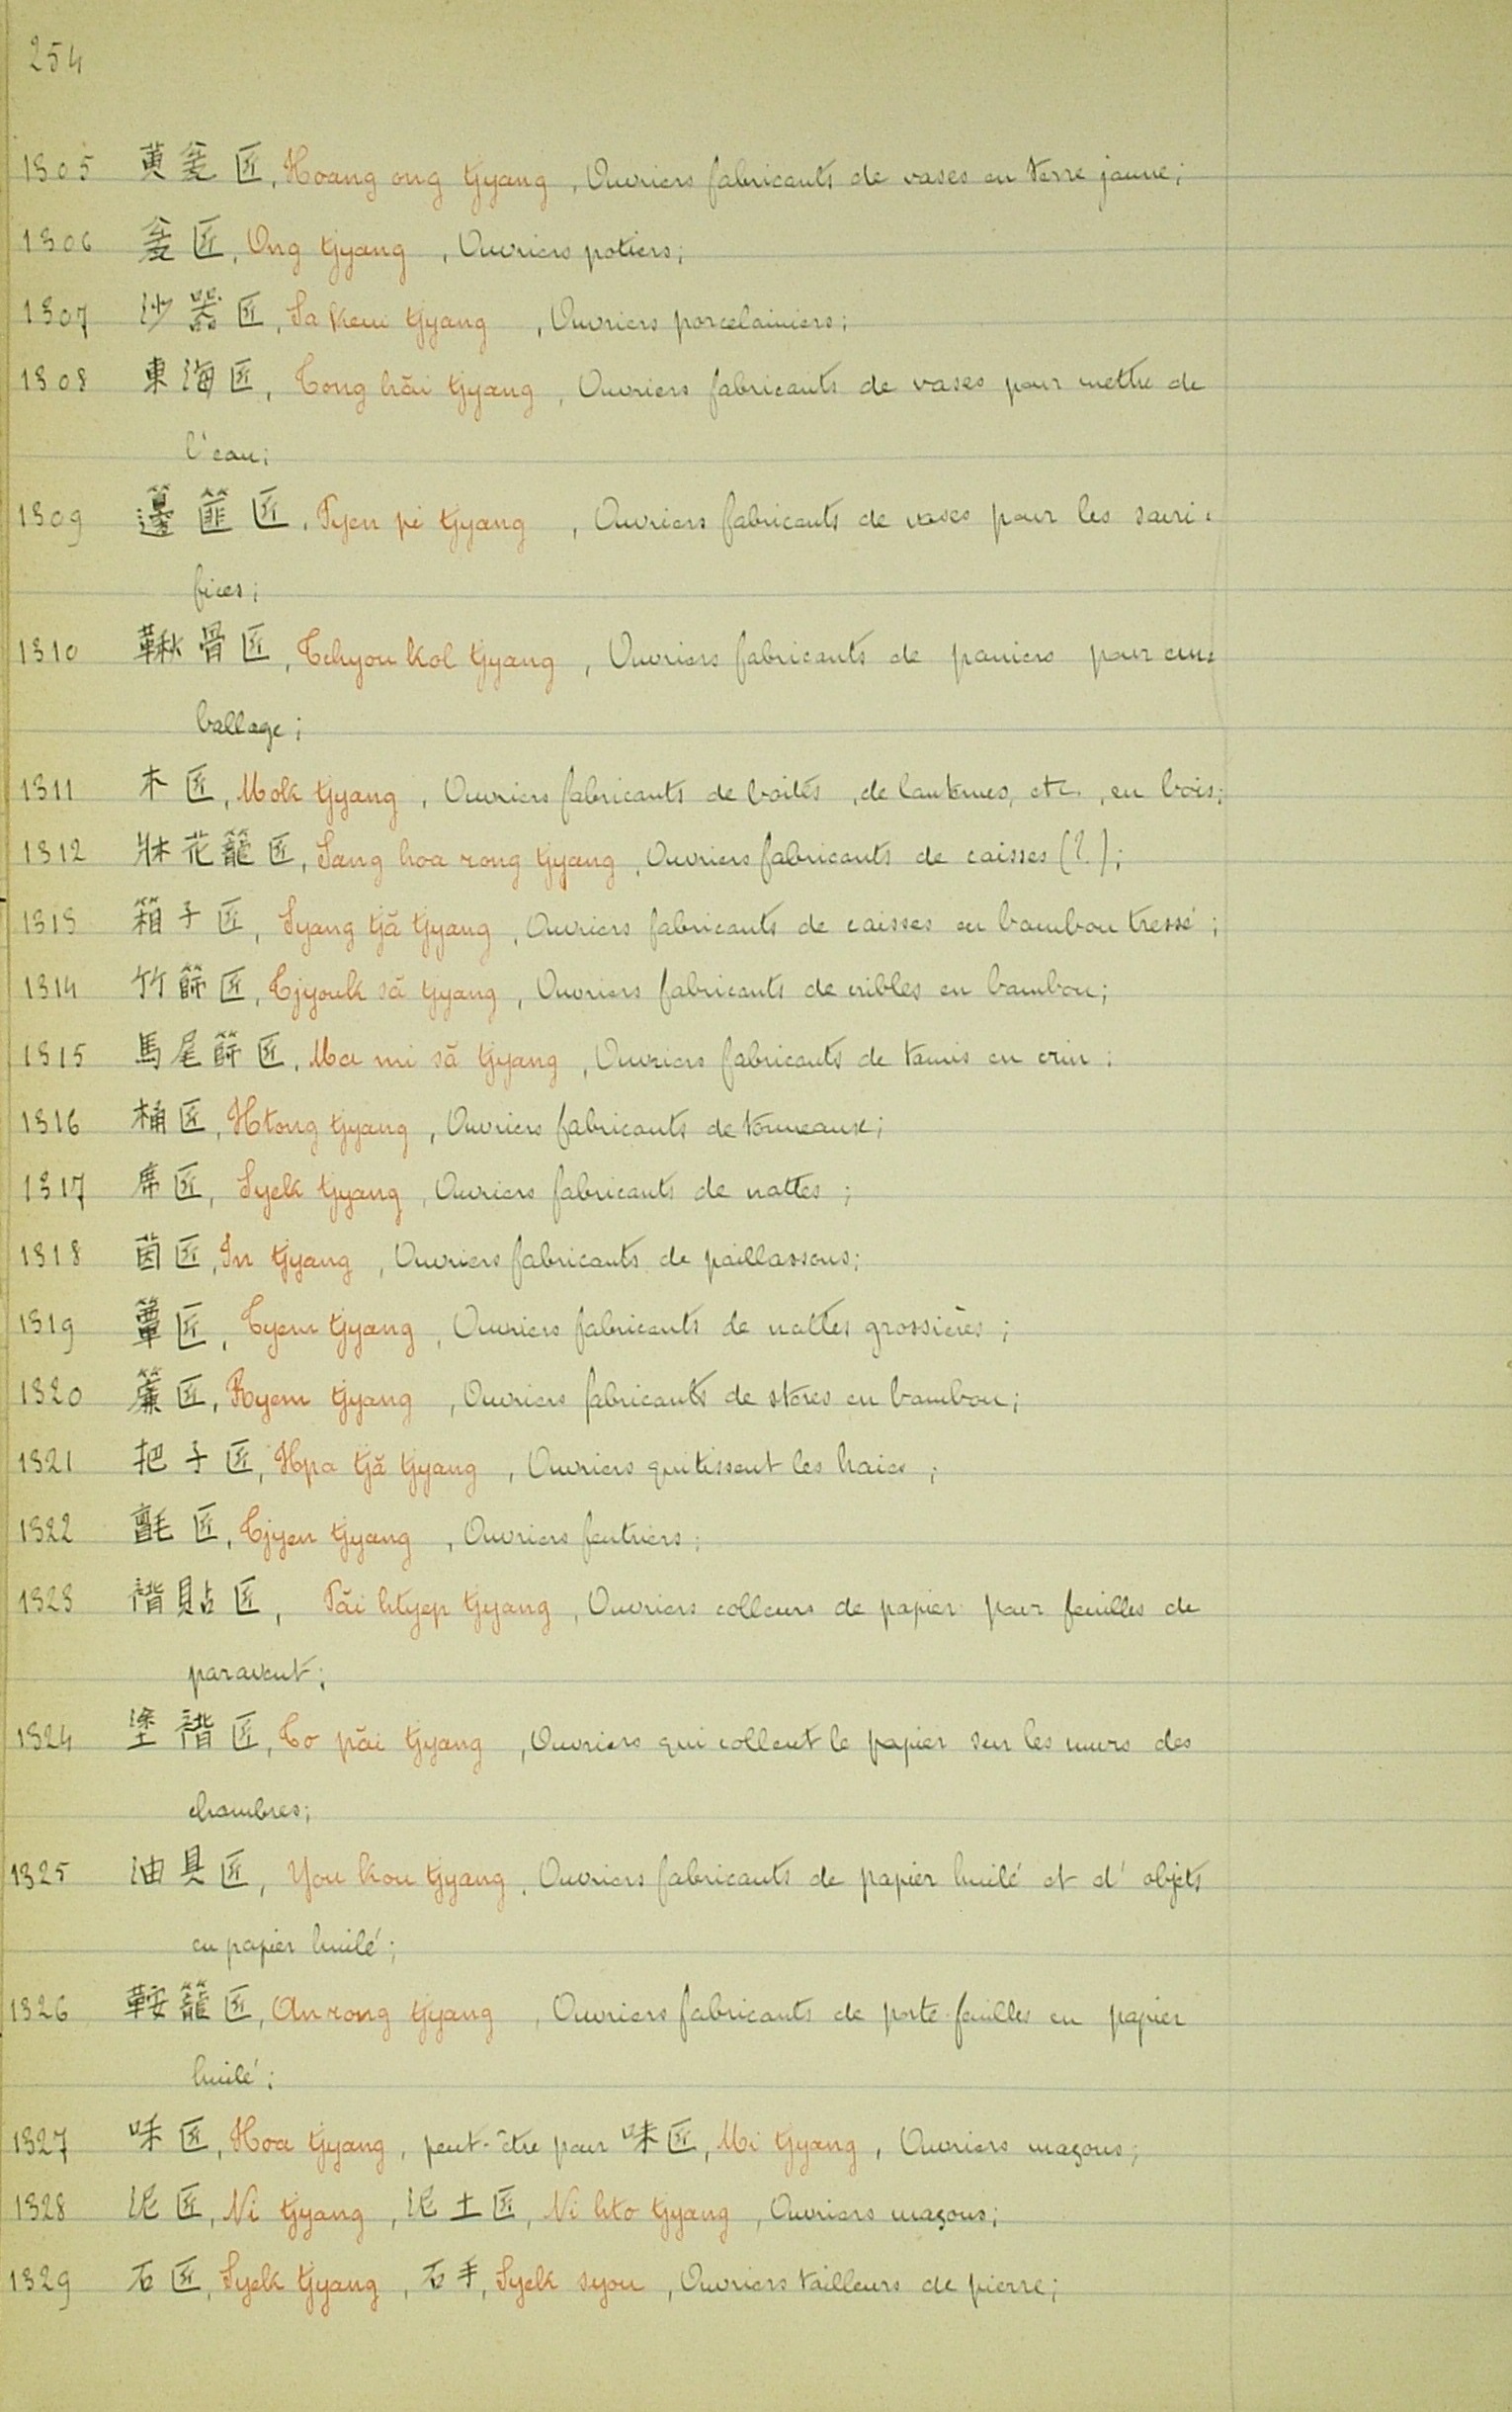 254
1305 黄瓮匠, Hoang ong tjyang, Ouvriers fabricants de vases en terre jaune;
1306 瓮匠, Ong tjyang, Ouvriers potiers;
1307 沙器匠, Sa keui tjyang, Ouvriers porcelainiers;
1308 東海匠, Tong hăi tjyang, Ouvriers fabricants de vases pour mettre de
l'eau;
1309 籩篚匠, Pyen pi tjyang, Ouvriers fabricants de vases pour les sacri-
fices;
1310 鞦骨匠, Tchyou kol tjyang, Ouvriers fabricants de paniers pour em-
ballage;
1311 木匠, Mok tjyang, Ouvriers fabricants de boîtes, de lanternes, etc., en bois;
1312 牀花籠匠, Sang hoa rong tjyang, Ouvriers fabricants de caisses (?.);
1313 箱子匠, Syang tjă tjyang, Ouvriers fabricants de caisses en bambou tressé;
1314 竹篩匠, Tjyouk să tjyang, Ouvriers fabricants de cribles en bambou;
1315 馬尾篩匠, Ma mi să tjyang, Ouvriers fabricants de tamis en crin;
1316 桶匠, Htong tjyang, Ouvriers fabricants de tonneaux;
1317 席匠, Syek tjyang, Ouvriers fabricants de nattes;
1318 茵匠, In tjyang, Ouvriers fabricants de paillassons;
1319 簟匠, Tyem tjyang, Ouvriers fabricants de nattes grossières;
1320 簾匠, Ryem tjyang, Ouvriers fabricants de stores en bambou;
1321 把子匠, Hpa tjă tjyang, Ouvriers qui tissent les haies;
1322 氊匠, Tjyen tjyang, Ouvriers feutriers;
1323 褙貼匠, Păi htyep tjyang, Ouvriers colleurs de papier pour feuilles de
paravent;
1324 塗褙匠, To păi tjyang, Ouvriers qui collent le papier sur les murs des
chambres;
1325 油具匠, You kou tjyang, Ouvriers fabricants de papier huilé et d'objets
en papier huilé;
1326 鞍籠匠, An rong tjyang, Ouvriers fabricants de porte-feuilles en papier
huilé;
1327 咊匠, Hoa tjyang, peut-être pour 味匠, Mi tjyang, Ouvriers maçons;
1328 泥匠, Ni tjyang, 泥土匠, Ni hto tjyang, Ouvriers maçons;
1329 石匠, Syek tjyang, 石手, Syek syou, Ouvriers tailleurs de pierre;